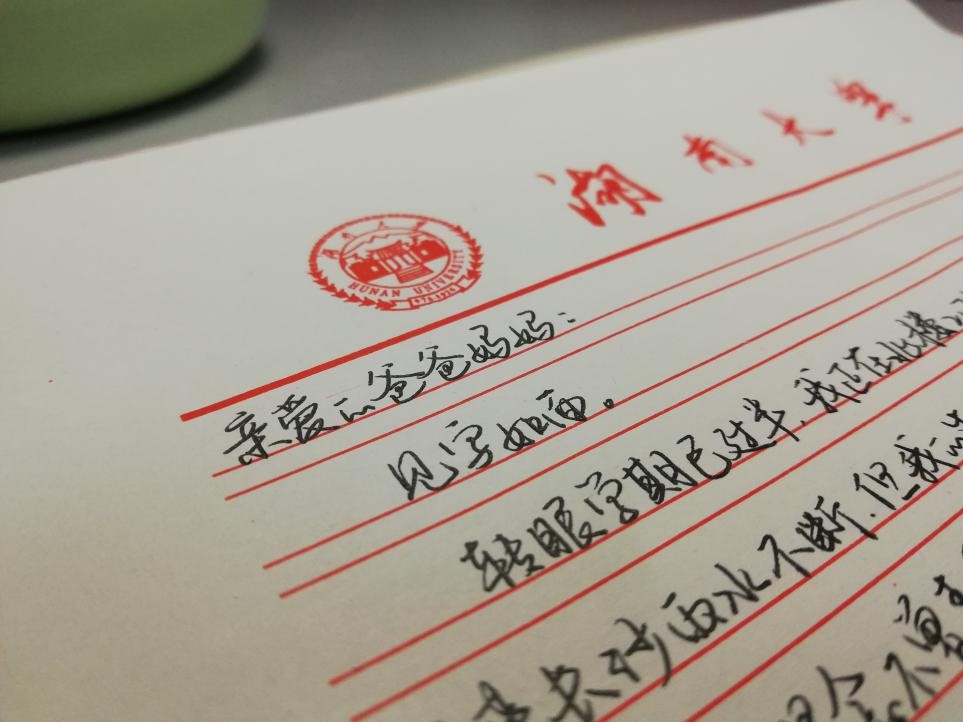 湖南大学
HUNAN UNIVERSITY
亲爱的爸爸妈妈：
见字如面。
转眼学期已过半，我正在北楼
长沙雨水不断，但我